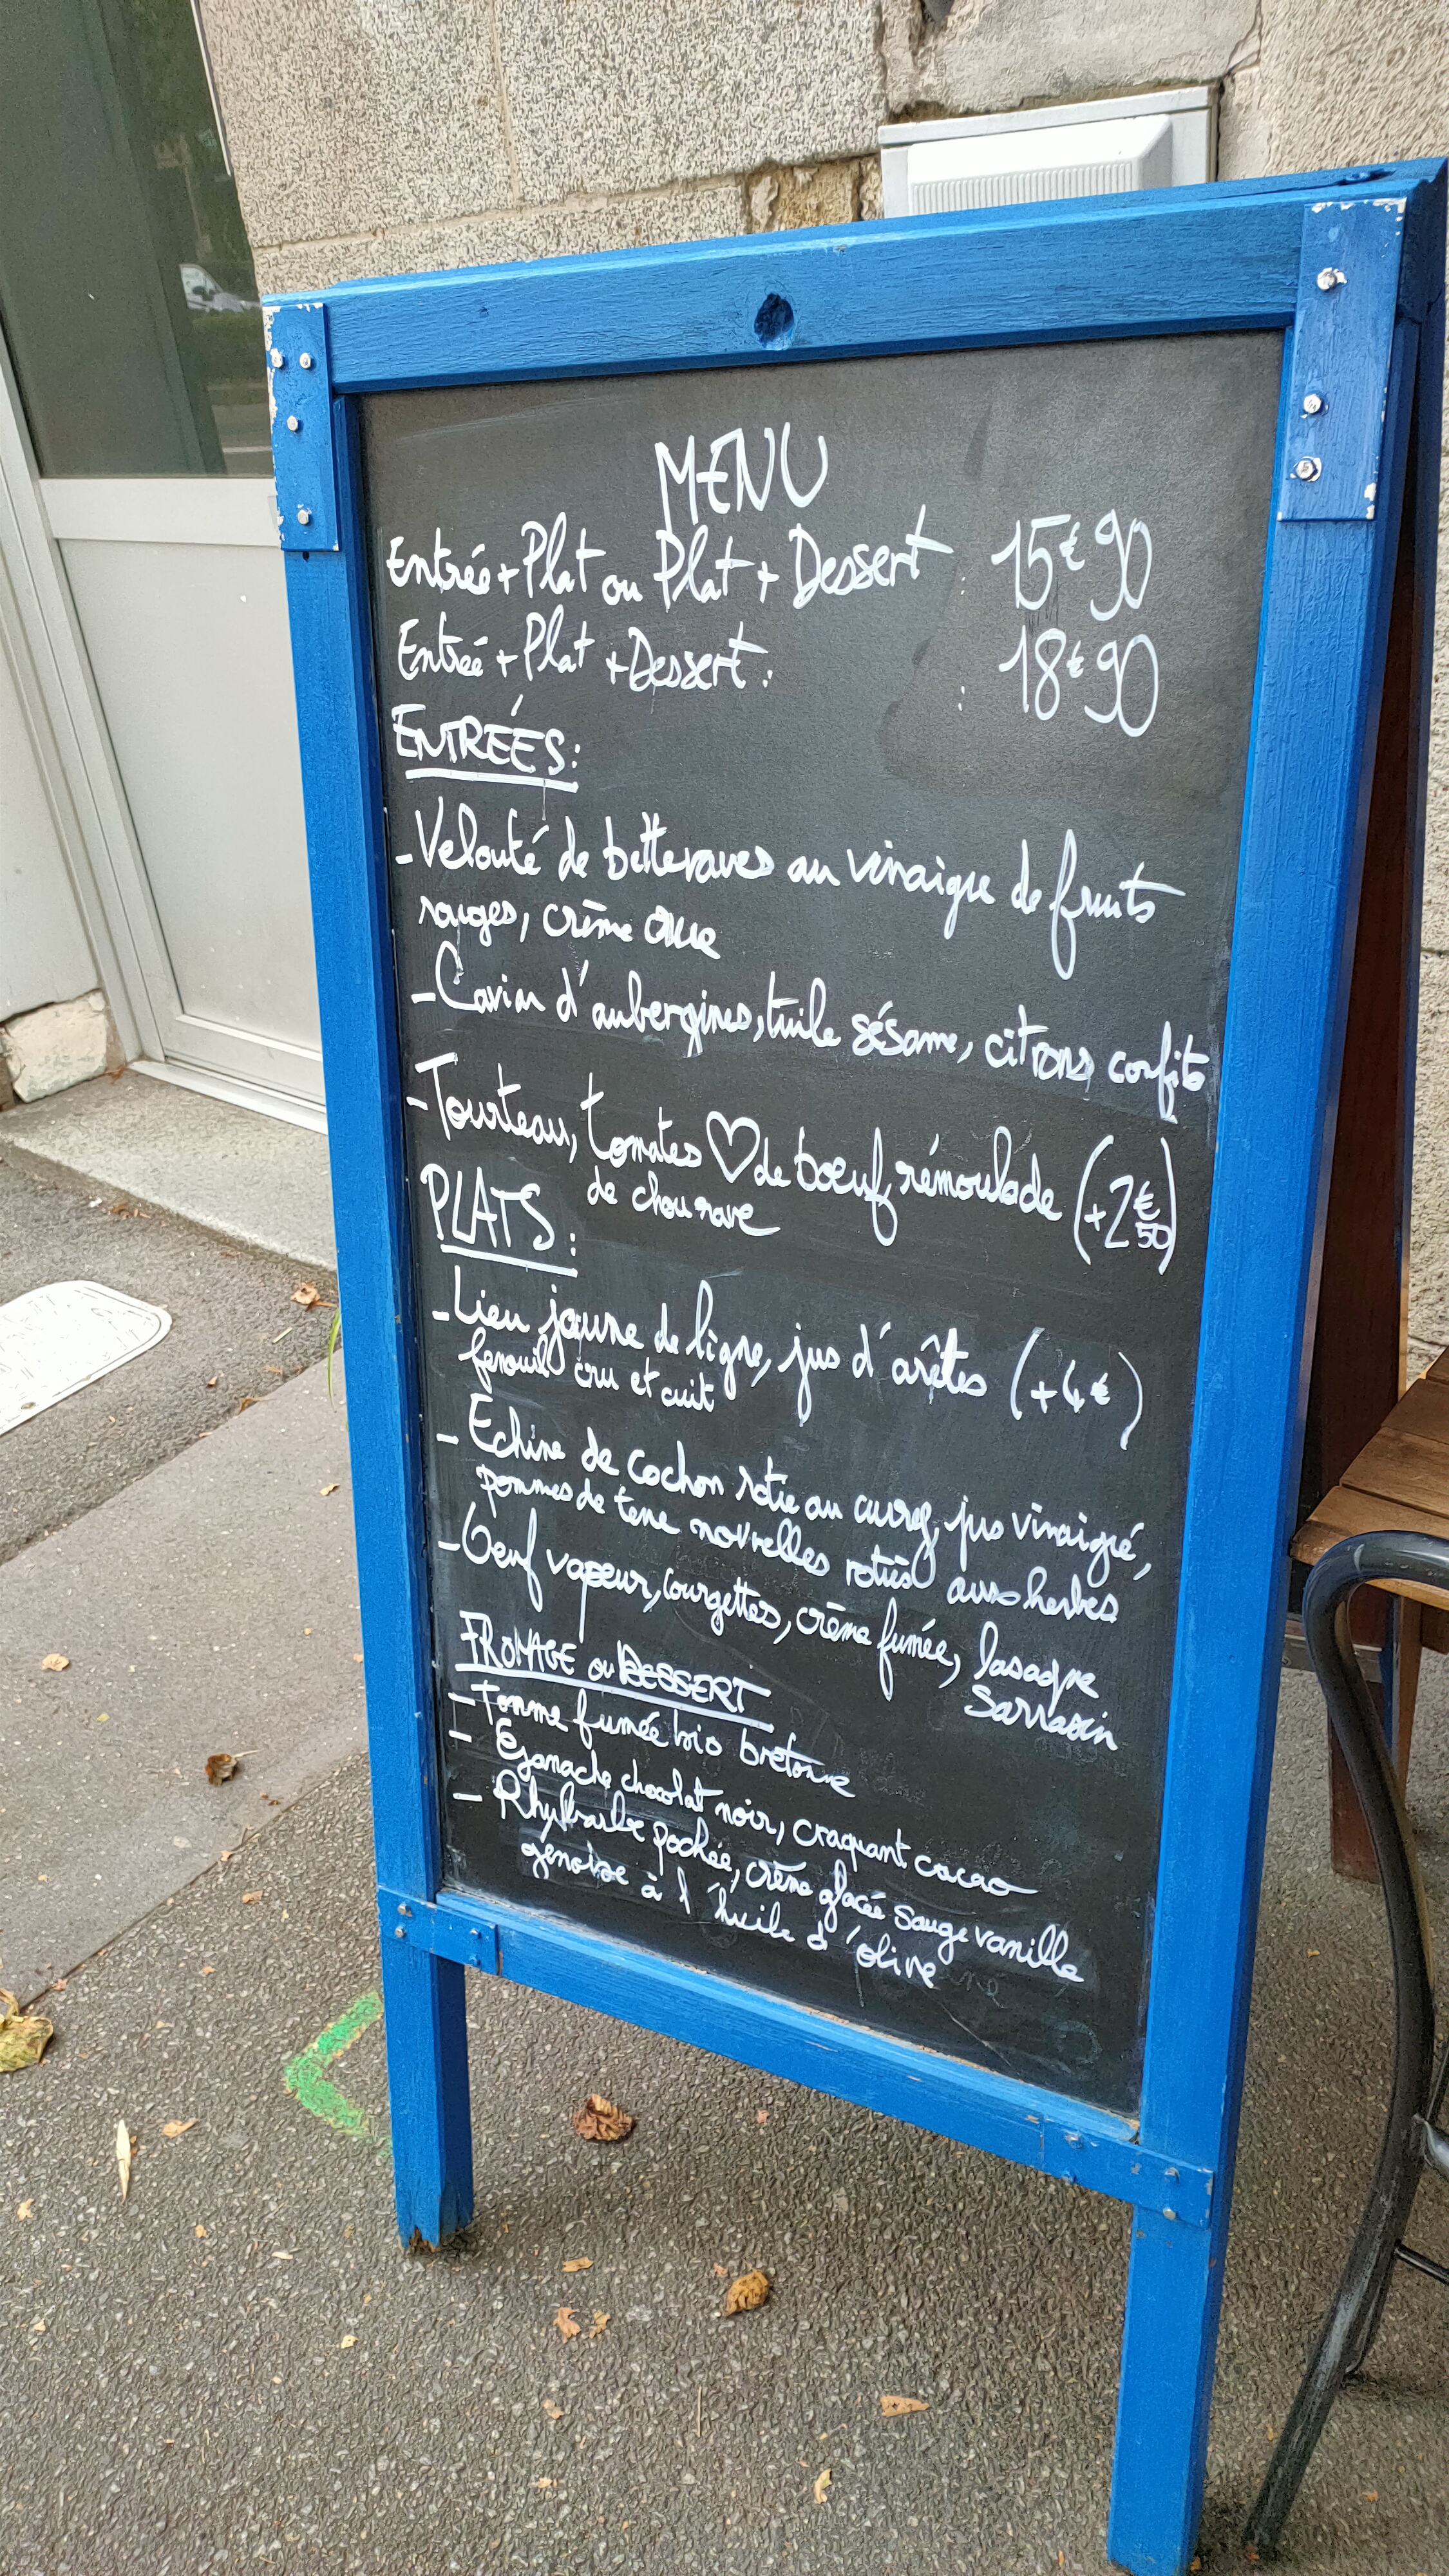 MENU
Entrée + Plat ou Plat + Dessert : 15€90
Entrée + Plat + Dessert : : 18€90
ENTRÉES :
- Velouté de betteraves au vinaigre de fruits
rouges, crème crue
- Caviar d'aubergines, tuile sésame, citrons confits
- Tourteau, tomates ♡ de bœuf rémoulade (+2€50)
de chou rave
PLATS :
- Lieu jaune de ligne, jus d'arêtes (+4€)
fenouil cru et cuit
- Echine de cochon rotie au curry, jus vinaigré,
pommes de terre nouvelles roties aux herbes
- Oeuf vapeur, courgettes, crème fumée, lasagne
sarrasin
FROMAGE ou DESSERT
- Tomme fumée bio bretonne
- Ganache chocolat noir, craquant cacao
- Rhubarbe pochée, crème glacée sauge vanille
genoise à l'huile d'olive